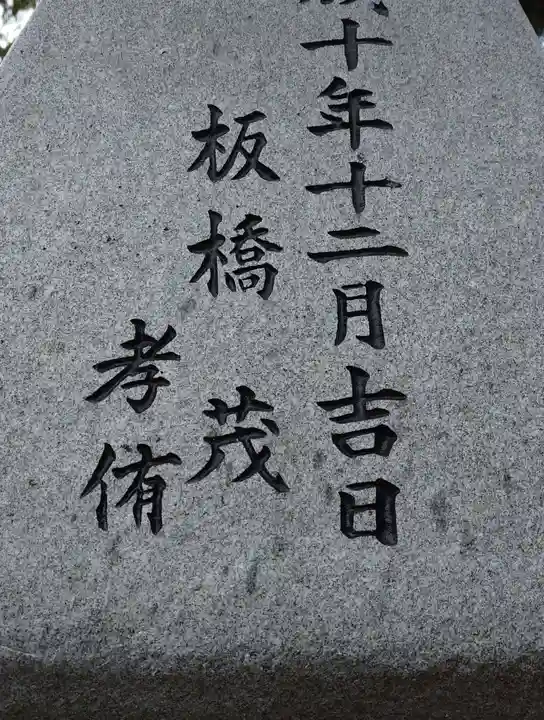 成十年十二月吉日
板橋 茂
孝侑